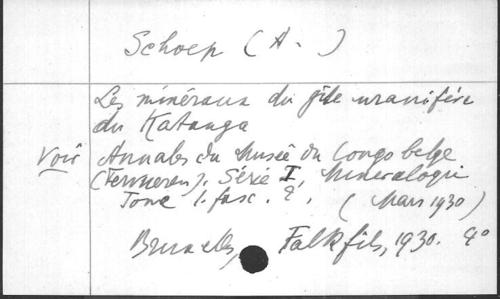 Schoep (A.)
Les minéraux du gîte uranifère
du Katanga
Voir Annales du Musée du Congo belge
(Tervueren). Série I, Mineralogie
Tome 1. fasc. 2. (Mars 1930)
Bruxelles, Falk fils, 1930. 4°